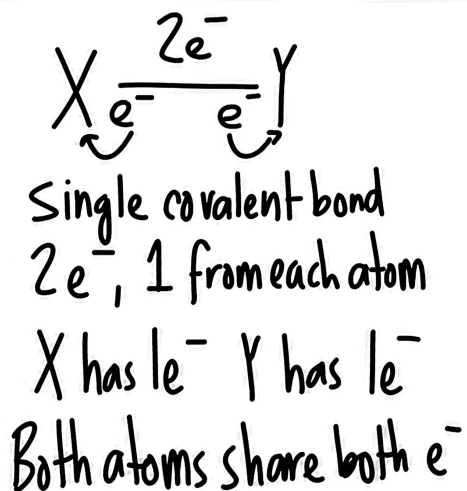 2e⁻
X e⁻ e⁻ Y
single covalent bond
2e⁻, 1 from each atom
X has 1e⁻ Y has 1e⁻
Both atoms share both e⁻